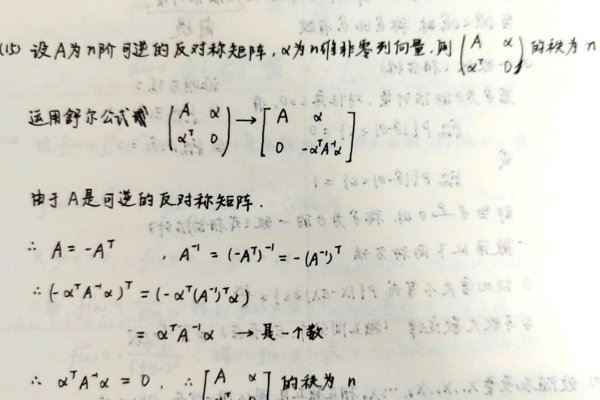 (15) 设A为n阶可逆的反对称矩阵,α为n维非零列向量,则 (A α; αᵀ 0) 的秩为 n
运用舒尔公式 (A α; αᵀ 0) → [A α; 0 -αᵀA⁻¹α]
由于A是可逆的反对称矩阵.
∴ A = -Aᵀ , A⁻¹ = (-Aᵀ)⁻¹ = -(A⁻¹)ᵀ
∴ (-αᵀA⁻¹α)ᵀ = (-αᵀ(A⁻¹)ᵀα)
= αᵀA⁻¹α → 是一个数
∴ αᵀA⁻¹α = 0 . ∴ [A α; αᵀ 0] 的秩为 n